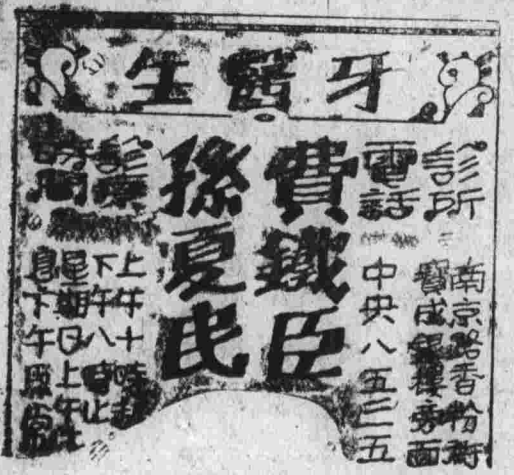 牙醫生
診所
南京路香粉衖
寶成銀樓旁面
電話
中央八五三五
費鐵臣
孫夏民
診察
時間
上午十時起
下午八時止
星期日上午休
息下午照常